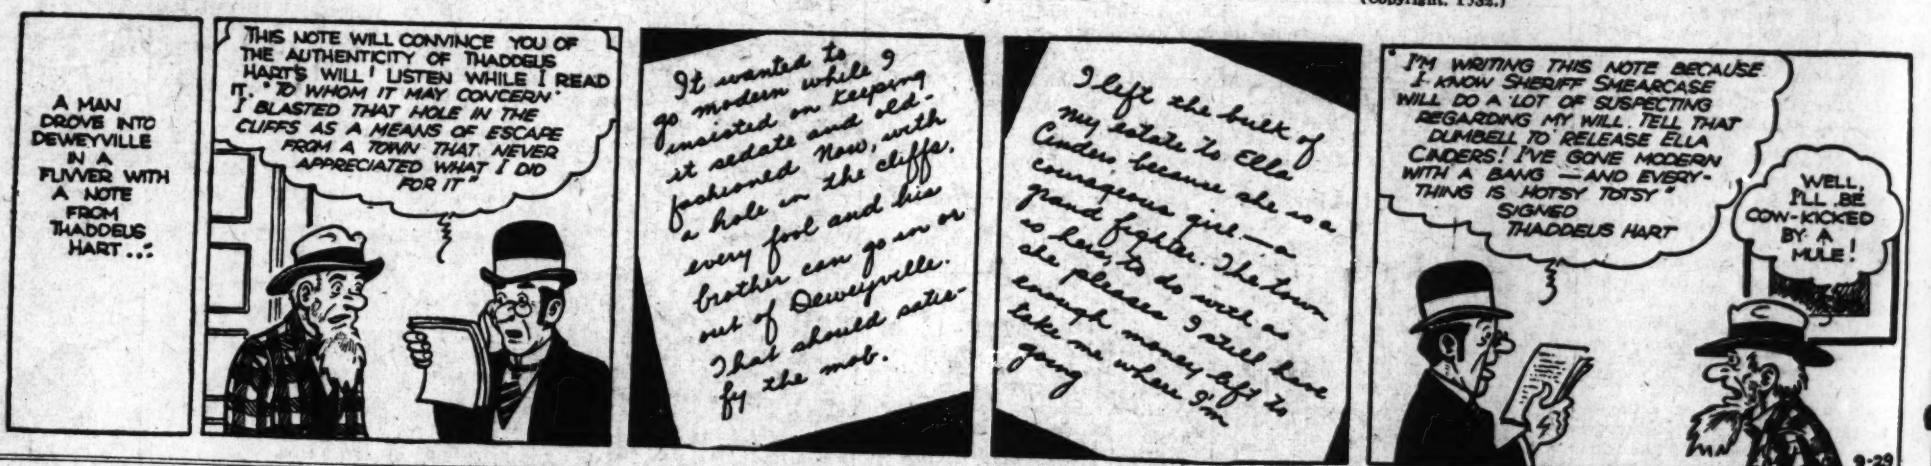 (Copyright, 1932.)
A MAN
DROVE INTO
DEWEYVILLE
IN A
FLIVVER WITH
A NOTE
FROM
THADDEUS
HART...
THIS NOTE WILL CONVINCE YOU OF
THE AUTHENTICITY OF THADDEUS
HART'S WILL! LISTEN WHILE I READ
IT. "TO WHOM IT MAY CONCERN"
I BLASTED THAT HOLE IN THE
CLIFFS AS A MEANS OF ESCAPE
FROM A TOWN THAT NEVER
APPRECIATED WHAT I DID
FOR IT"
It wanted to
go modern while I
insisted on keeping
it sedate and old-
fashioned Now, with
a hole in the cliffs,
every fool and his
brother can go in or
out of Deweyville.
That should satis-
fy the mob.
I left the bulk of
my estate to Ella
Cinders because she is a
courageous girl — a
grand fighter. The town
is hers, to do with as
she pleases I still have
enough money left to
take me where I'm
going
"I'M WRITING THIS NOTE BECAUSE
I KNOW SHERIFF SMEARCASE
WILL DO A LOT OF SUSPECTING
REGARDING MY WILL. TELL THAT
DUMBELL TO RELEASE ELLA
CINDERS! I'VE GONE MODERN
WITH A BANG — AND EVERY-
THING IS HOTSY TOTSY"
SIGNED
THADDEUS HART
WELL,
I'LL BE
COW-KICKED
BY A
MULE!
9-29